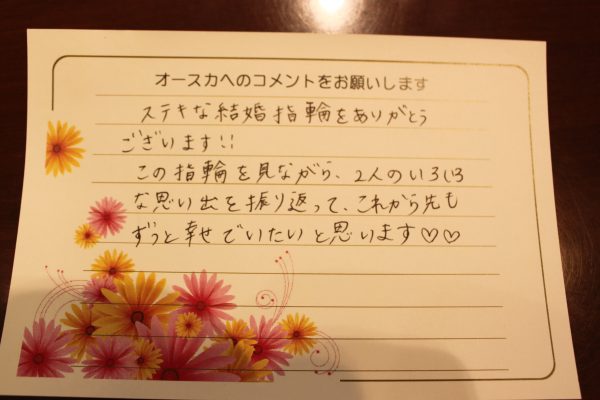 オースカへのコメントをお願いします
ステキな結婚指輪をありがとう
ございます!!
この指輪を見ながら、2人のいろいろ
な思い出を振り返って、これから先も
ずっと幸せでいたいと思います♡♡